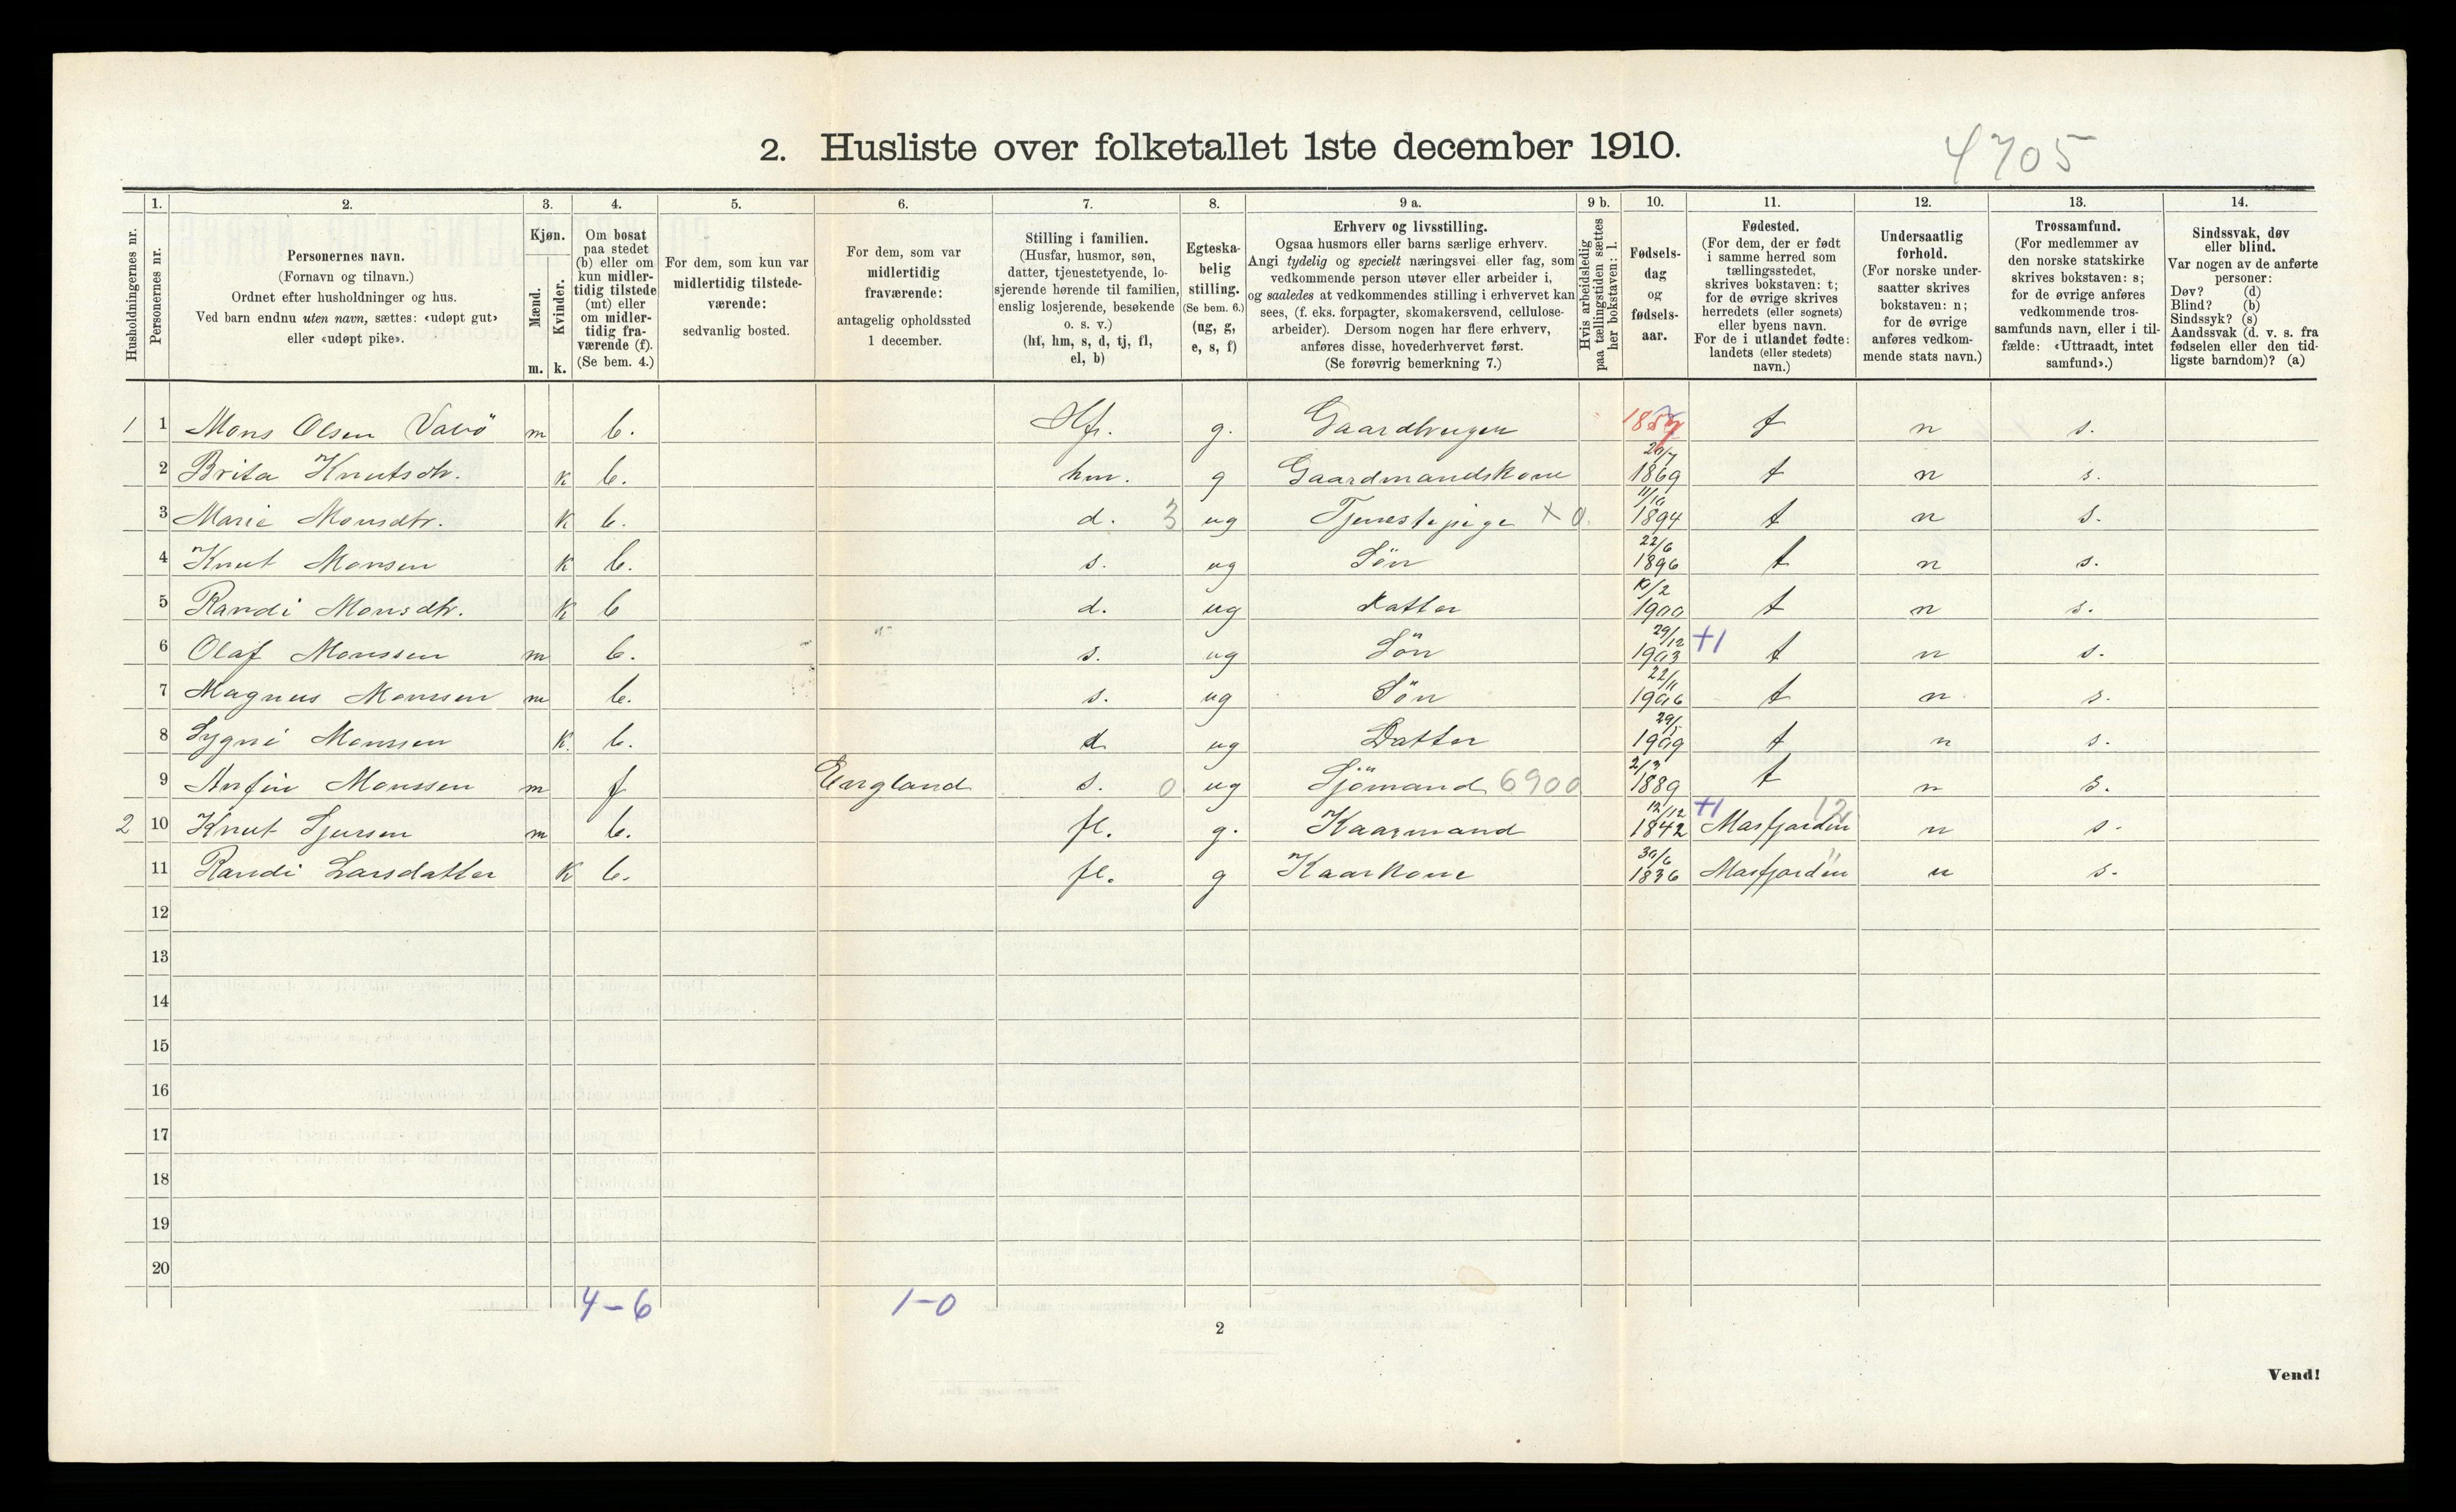 2. Husliste over folketallet 1ste december 1910.
4705
Husholdningernes nr.
1.
Personernes nr.
2.
Personernes navn.
(Fornavn og tilnavn.)
Ordnet efter husholdninger og hus.
Ved barn endnu uten navn, sættes: «udøpt gut»
eller «udøpt pike».
3.
Kjøn.
Mænd.
Kvinder.
m. k.
4.
Om bosat
paa stedet
(b) eller om
kun midler-
tidig tilstede
(mt) eller
om midler-
tidig fra-
værende (f).
(Se bem. 4.)
5.
For dem, som kun var
midlertidig tilstede-
værende:
sedvanlig bosted.
6.
For dem, som var
midlertidig
fraværende:
antagelig opholdssted
1 december.
7.
Stilling i familien.
(Husfar, husmor, søn,
datter, tjenestetyende, lo-
sjerende hørende til familien,
enslig losjerende, besøkende
o. s. v.)
(hf, hm, s, d, tj, fl,
el, b)
8.
Egteska-
belig
stilling.
(Se bem. 6.)
(ug, g,
e, s, f)
9 a.
Erhverv og livsstilling.
Ogsaa husmors eller barns særlige erhverv.
Angi tydelig og specielt næringsvei eller fag, som
vedkommende person utøver eller arbeider i,
og saaledes at vedkommendes stilling i erhvervet kan
sees, (f. eks. forpagter, skomakersvend, cellulose-
arbeider). Dersom nogen har flere erhverv,
anføres disse, hovederhvervet først.
(Se forøvrig bemerkning 7.)
9 b.
Hvis arbeidsledig
paa tællingstiden sættes
her bokstaven: l.
10.
Fødsels-
dag
og
fødsels-
aar.
11.
Fødested.
(For dem, der er født
i samme herred som
tællingsstedet,
skrives bokstaven: t;
for de øvrige skrives
herredets (eller sognets)
eller byens navn.
For de i utlandet fødte:
landets (eller stedets)
navn.)
12.
Undersaatlig
forhold.
(For norske under-
saatter skrives
bokstaven: n;
for de øvrige
anføres vedkom-
mende stats navn.)
13.
Trossamfund.
(For medlemmer av
den norske statskirke
skrives bokstaven: s;
for de øvrige anføres
vedkommende tros-
samfunds navn, eller i til-
fælde: «Uttraadt, intet
samfund».)
14.
Sindssvak, døv
eller blind.
Var nogen av de anførte
personer:
Døv? (d)
Blind? (b)
Sindssyk? (s)
Aandssvak (d. v. s. fra
fødselen eller den tid-
ligste barndom)? (a)
1 1 Mons Olsen m b. Hf. g. Gaardbruger t n s.
2 Brita Knutsdtr. k b. hm. g Gaardmandskone 26/7 1869 t n s.
3 Marie Monsdtr. k b. d. 3 ug Tjenestepige x 0. 11/10 1894 t n s.
4 Knut Monsen k b. s. ug Sön 22/6 1896 t n s.
5 Randi Monsdtr. k b d. ug Datter 1900 t n s.
6 Olaf Monssen m b. s. ug Sön 29/12 1903 +1 t n s.
7 Magnus Monssen m b. s. ug Sön 22/11 1906 t n s.
8 Sygni Monssen k. b. d ug Datter 1909 t n s.
9 Anfin Monssen m f England s. 0 ug Sjömand 6900 2/3 1889 t n s.
2 10 Knut Sjursen m b. fl. g. Kaarmand 12/12 1842 +1 Masfjorden 12 n s.
11 Randi Larsdatter k b. fl. g Kaarkone 30/6 1836 Masfjorden " n s.
12
13
14
15
16
17
18
19
20
4-6 1-0
2
Vend!